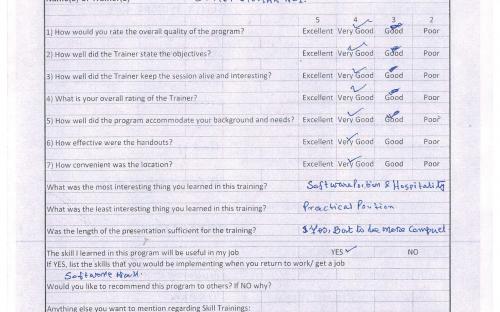 5 4 3 2
1) How would you rate the overall quality of the program? Excellent Very Good Good Poor
2) How well did the Trainer state the objectives? Excellent Very Good Good Poor
3) How well did the Trainer keep the session alive and interesting? Excellent Very Good Good Poor
4) What is your overall rating of the Trainer? Excellent Very Good Good Poor
5) How well did the program accommodate your background and needs? Excellent Very Good Good Poor
6) How effective were the handouts? Excellent Very Good Good Poor
7) How convenient was the location? Excellent Very Good Good Poor
What was the most interesting thing you learned in this training? Software Portion & Hospitality
What was the least interesting thing you learned in this training? Practical Portion
Was the length of the presentation sufficient for the training? Yes, But to be more
The skill I learned in this program will be useful in my job YES NO
If YES, list the skills that you would be implementing when you return to work/ get a job
Software
Would you like to recommend this program to others? If NO why?
Anything else you want to mention regarding Skill Trainings: